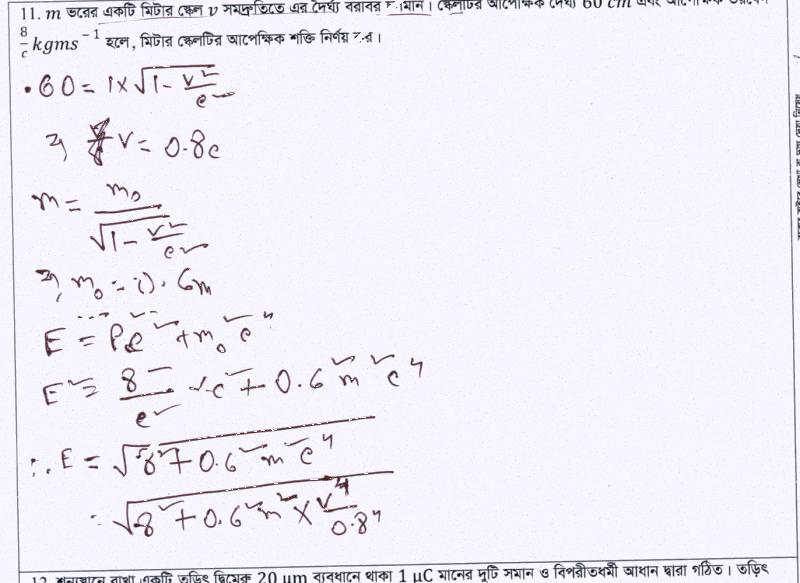 11. m ভরের একটি মিটার স্কেল v সমদ্রুতিতে এর দৈর্ঘ্য বরাবর স্কেলটির আপেক্ষিক দৈর্ঘ্য 60 cm এবং আপেক্ষিক ভরবেগ
8/c kgms⁻¹ হলে, মিটার স্কেলটির আপেক্ষিক শক্তি নির্ণয় কর।
.60 = 1×√(1 - v²/c²)
⇒ v = 0.8c
m = m₀/√(1 - v²/c²)
⇒, m₀ = 0.6m
E² = P²c² + m₀²c⁴
E² = 8²/c² × c² + 0.6²m²c⁴
∴ E = √(8² + 0.6²m²c⁴)
= √(8² + 0.6²m² × v⁴/0.8⁴)
12. শূন্যস্থানে রাখা একটি তড়িৎ দ্বিমেরু 20 μm ব্যবধানে থাকা 1 μC মানের দুটি সমান ও বিপরীতধর্মী আধান দ্বারা গঠিত। তড়িৎ